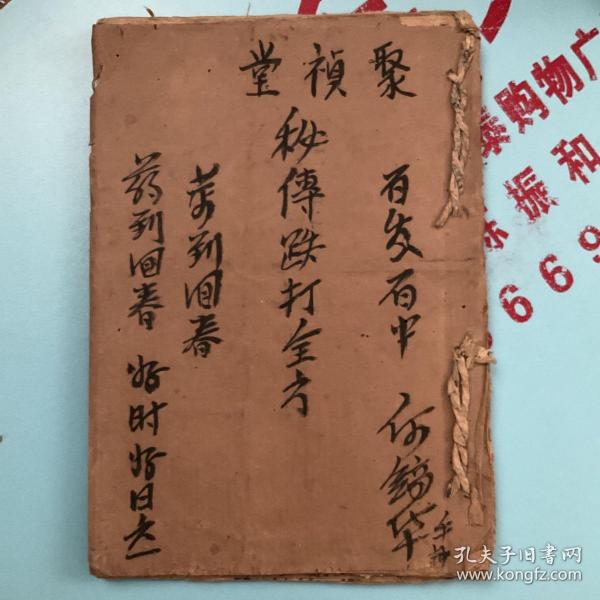 聚禎堂
百发百中
何錦华
手抄
秘傳跌打全方
葯到囬春
葯到囬春 好时好日立
泰购物广
振和
669
孔夫子旧书网
www.kongfz.com